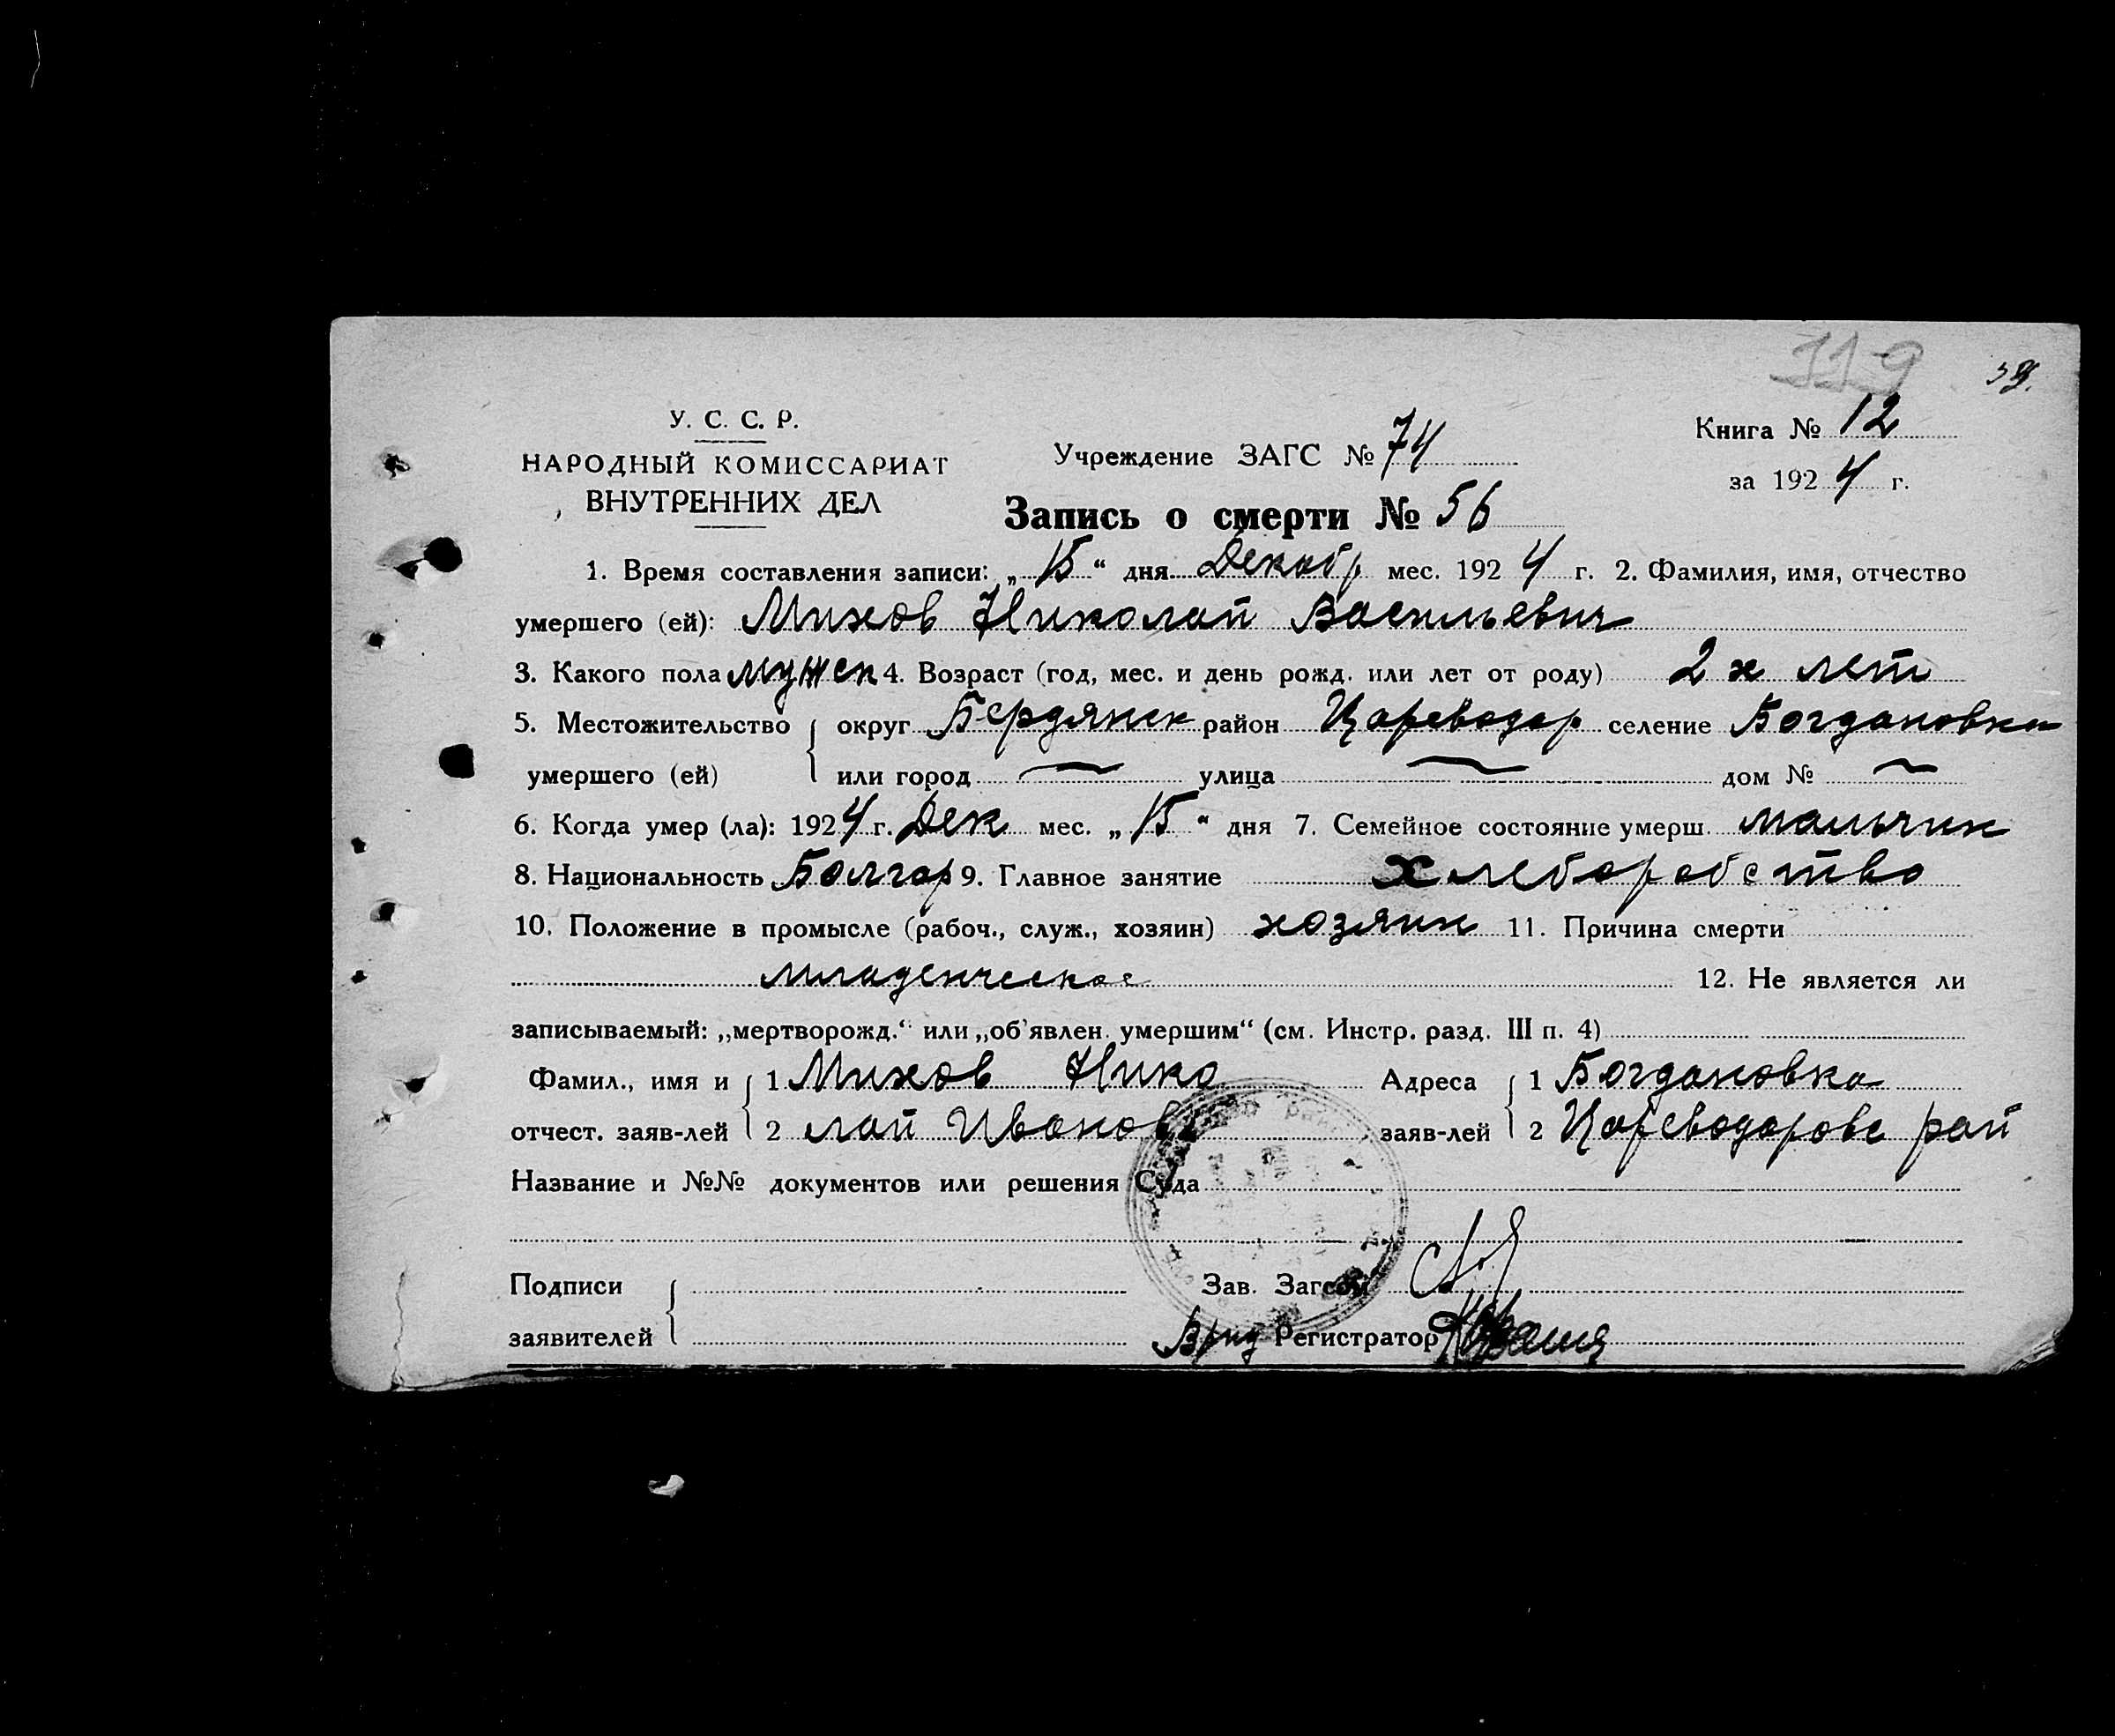 119 39.
У. С. С. Р.
НАРОДНЫЙ КОМИССАРИАТ
ВНУТРЕННИХ ДЕЛ
Учреждение ЗАГС № 74
Книга № 12
за 1924 г.
Запись о смерти № 56
1. Время составления записи: „15“ дня Декабр мес. 1924 г. 2. Фамилия, имя, отчество
умершего (ей): Михов Николай Васильевич
3. Какого пола мужск 4. Возраст (год, мес. и день рожд. или лет от роду) 2х лет
5. Местожительство округ Бердянск район Цареводар селение Богдановка
умершего (ей) или город — улица — дом № —
6. Когда умер (ла): 1924 г. Дек мес. „15“ дня 7. Семейное состояние умерш. мальчик
8. Национальность Болгар 9. Главное занятие хлеборобство
10. Положение в промысле (рабоч., служ., хозяин) хозяин 11. Причина смерти
младенческое 12. Не является ли
записываемый: „мертворожд.“ или „об’явлен. умершим“ (см. Инстр. разд. III п. 4)
Фамил., имя и 1 Михов Нико Адреса 1 Богдановка
отчест. заяв-лей 2 лай Иванов заяв-лей 2 Цареводаровс рай
Название и №№ документов или решения Суда
Подписи Зав. Загсом
заявителей Врид Регистратор